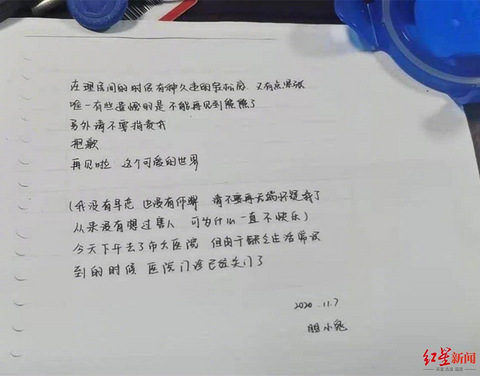 在理房间的时候有种久违的轻松感 又有点滑稽
唯一有些遗憾的是不能再见到熊熊了
另外请不要指责我
抱歉
再见啦 这个可爱的世界
(我没有早恋 也没有作弊 请不要再无端怀疑我了
从来没有想过害人 可为什么一直不快乐)
今天下午去了市大医院 但由于缺乏生活常识
到的时候 医院门诊已经关门了
2020.11.7
胆小鬼
红星新闻